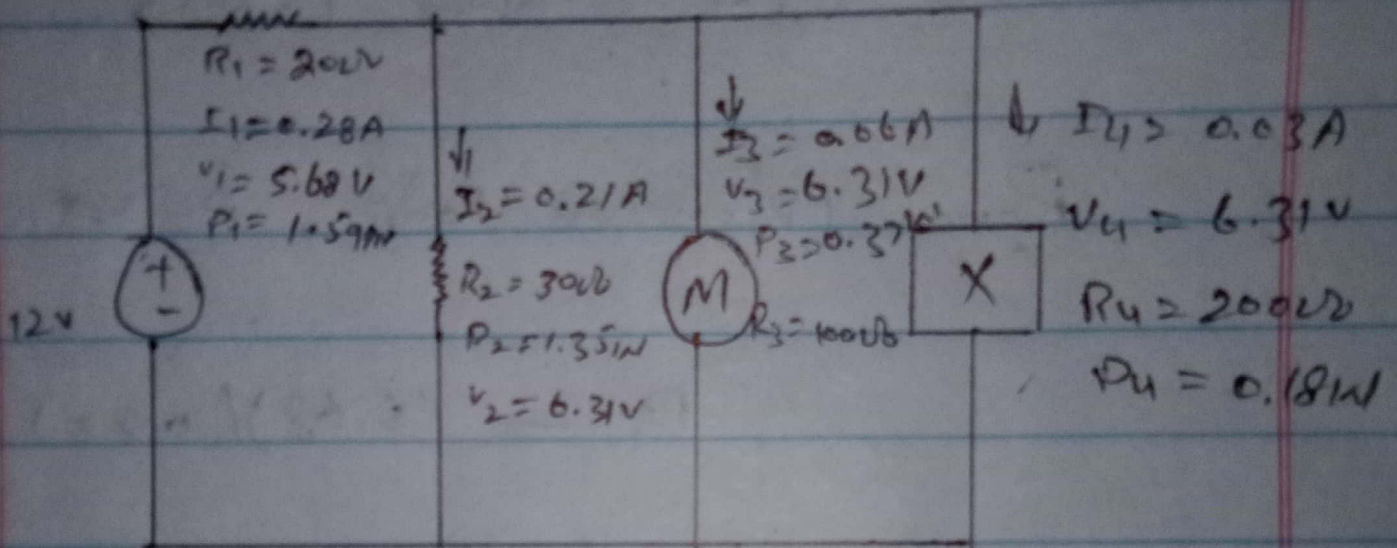 R1 = 20Ω
I1 = 0.28A
V1 = 5.68V
P1 = 1.59W
12V
+
-
I2 = 0.21A
R2 = 30Ω
P2 = 1.35W
V2 = 6.31V
I3 = 0.06A
V3 = 6.31V
P3 = 0.37W
M
R3 = 100Ω
X
I4 = 0.03A
V4 = 6.31V
R4 = 200Ω
P4 = 0.18W